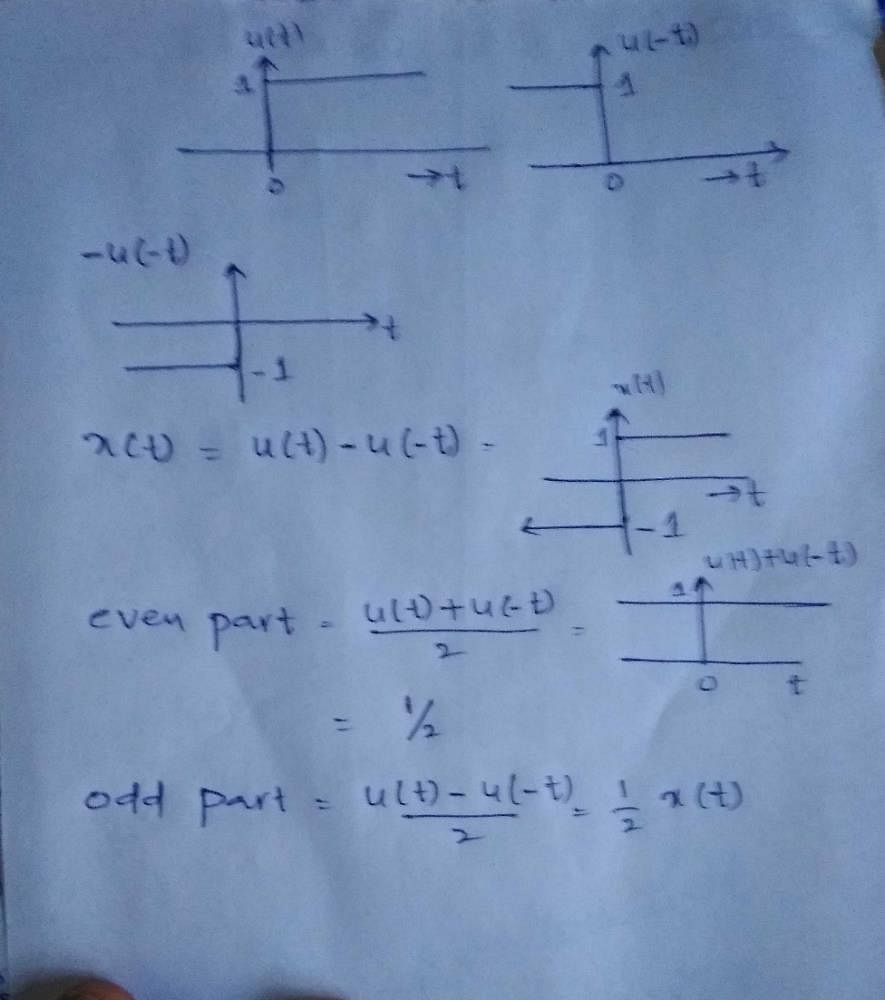 u(t) u(-t)
1 1
0 →t 0 →t
-u(-t)
t
-1
x(t)
x(t) = u(t) - u(-t) =
1
→t
-1
u(t)+u(-t)
1
even part = u(t)+u(-t)/2 =
0 t
= 1/2
odd part = u(t)-u(-t)/2 = 1/2 x(t)